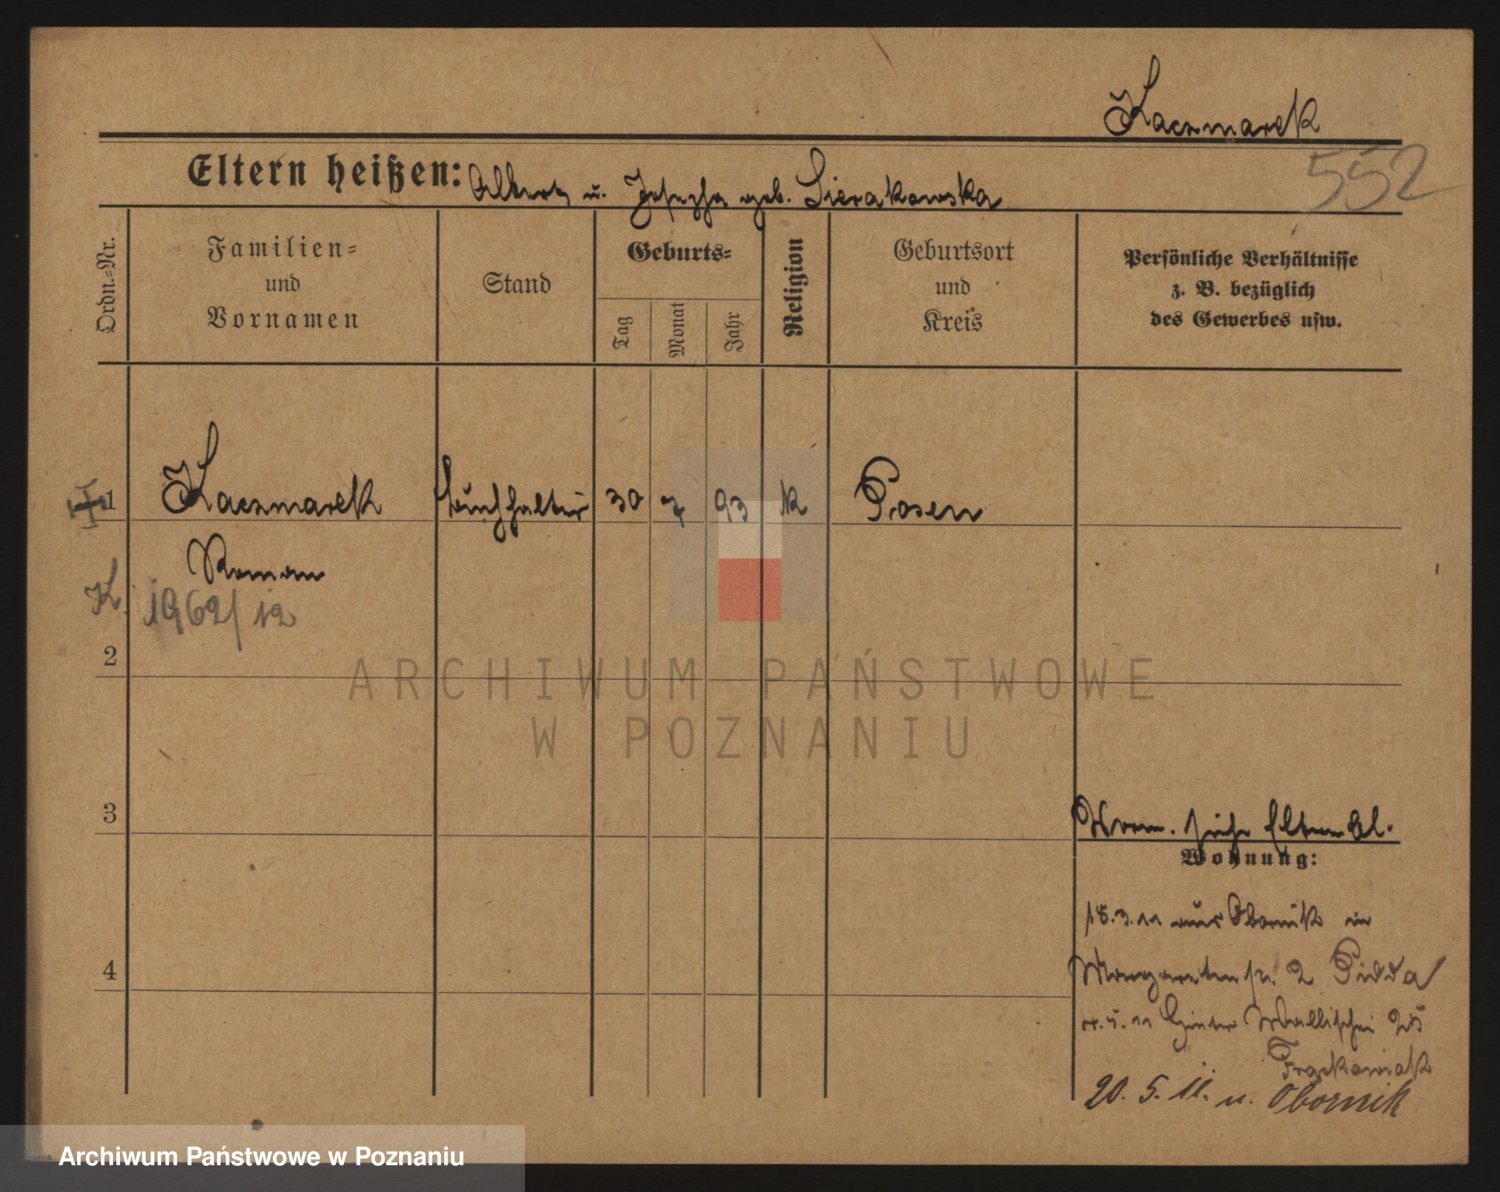 Kaczmarek
552
Eltern heißen: Albert u. Josepha geb. Sierakowska
Ordn.-Nr.
Familien-
und
Vornamen
Stand
Geburts-
Tag
Monat
Jahr
Religion
Geburtsort
und
Kreis
Persönliche Verhältnisse
z. B. bezüglich
des Gewerbes usw.
1 Kaczmarek Buchhalter 30 7 93 k Posen
Roman
K. 1962/12
2
3
4
Vorm. siehe Elternbl.
Wohnung:
18.3.11 aus Obornik in
Margaretenstr. 2
11 Hinter Wallischei 25
20. 5. 11. n. Obornik
ARCHIWUM PAŃSTWOWE
W POZNANIU
Archiwum Państwowe w Poznaniu